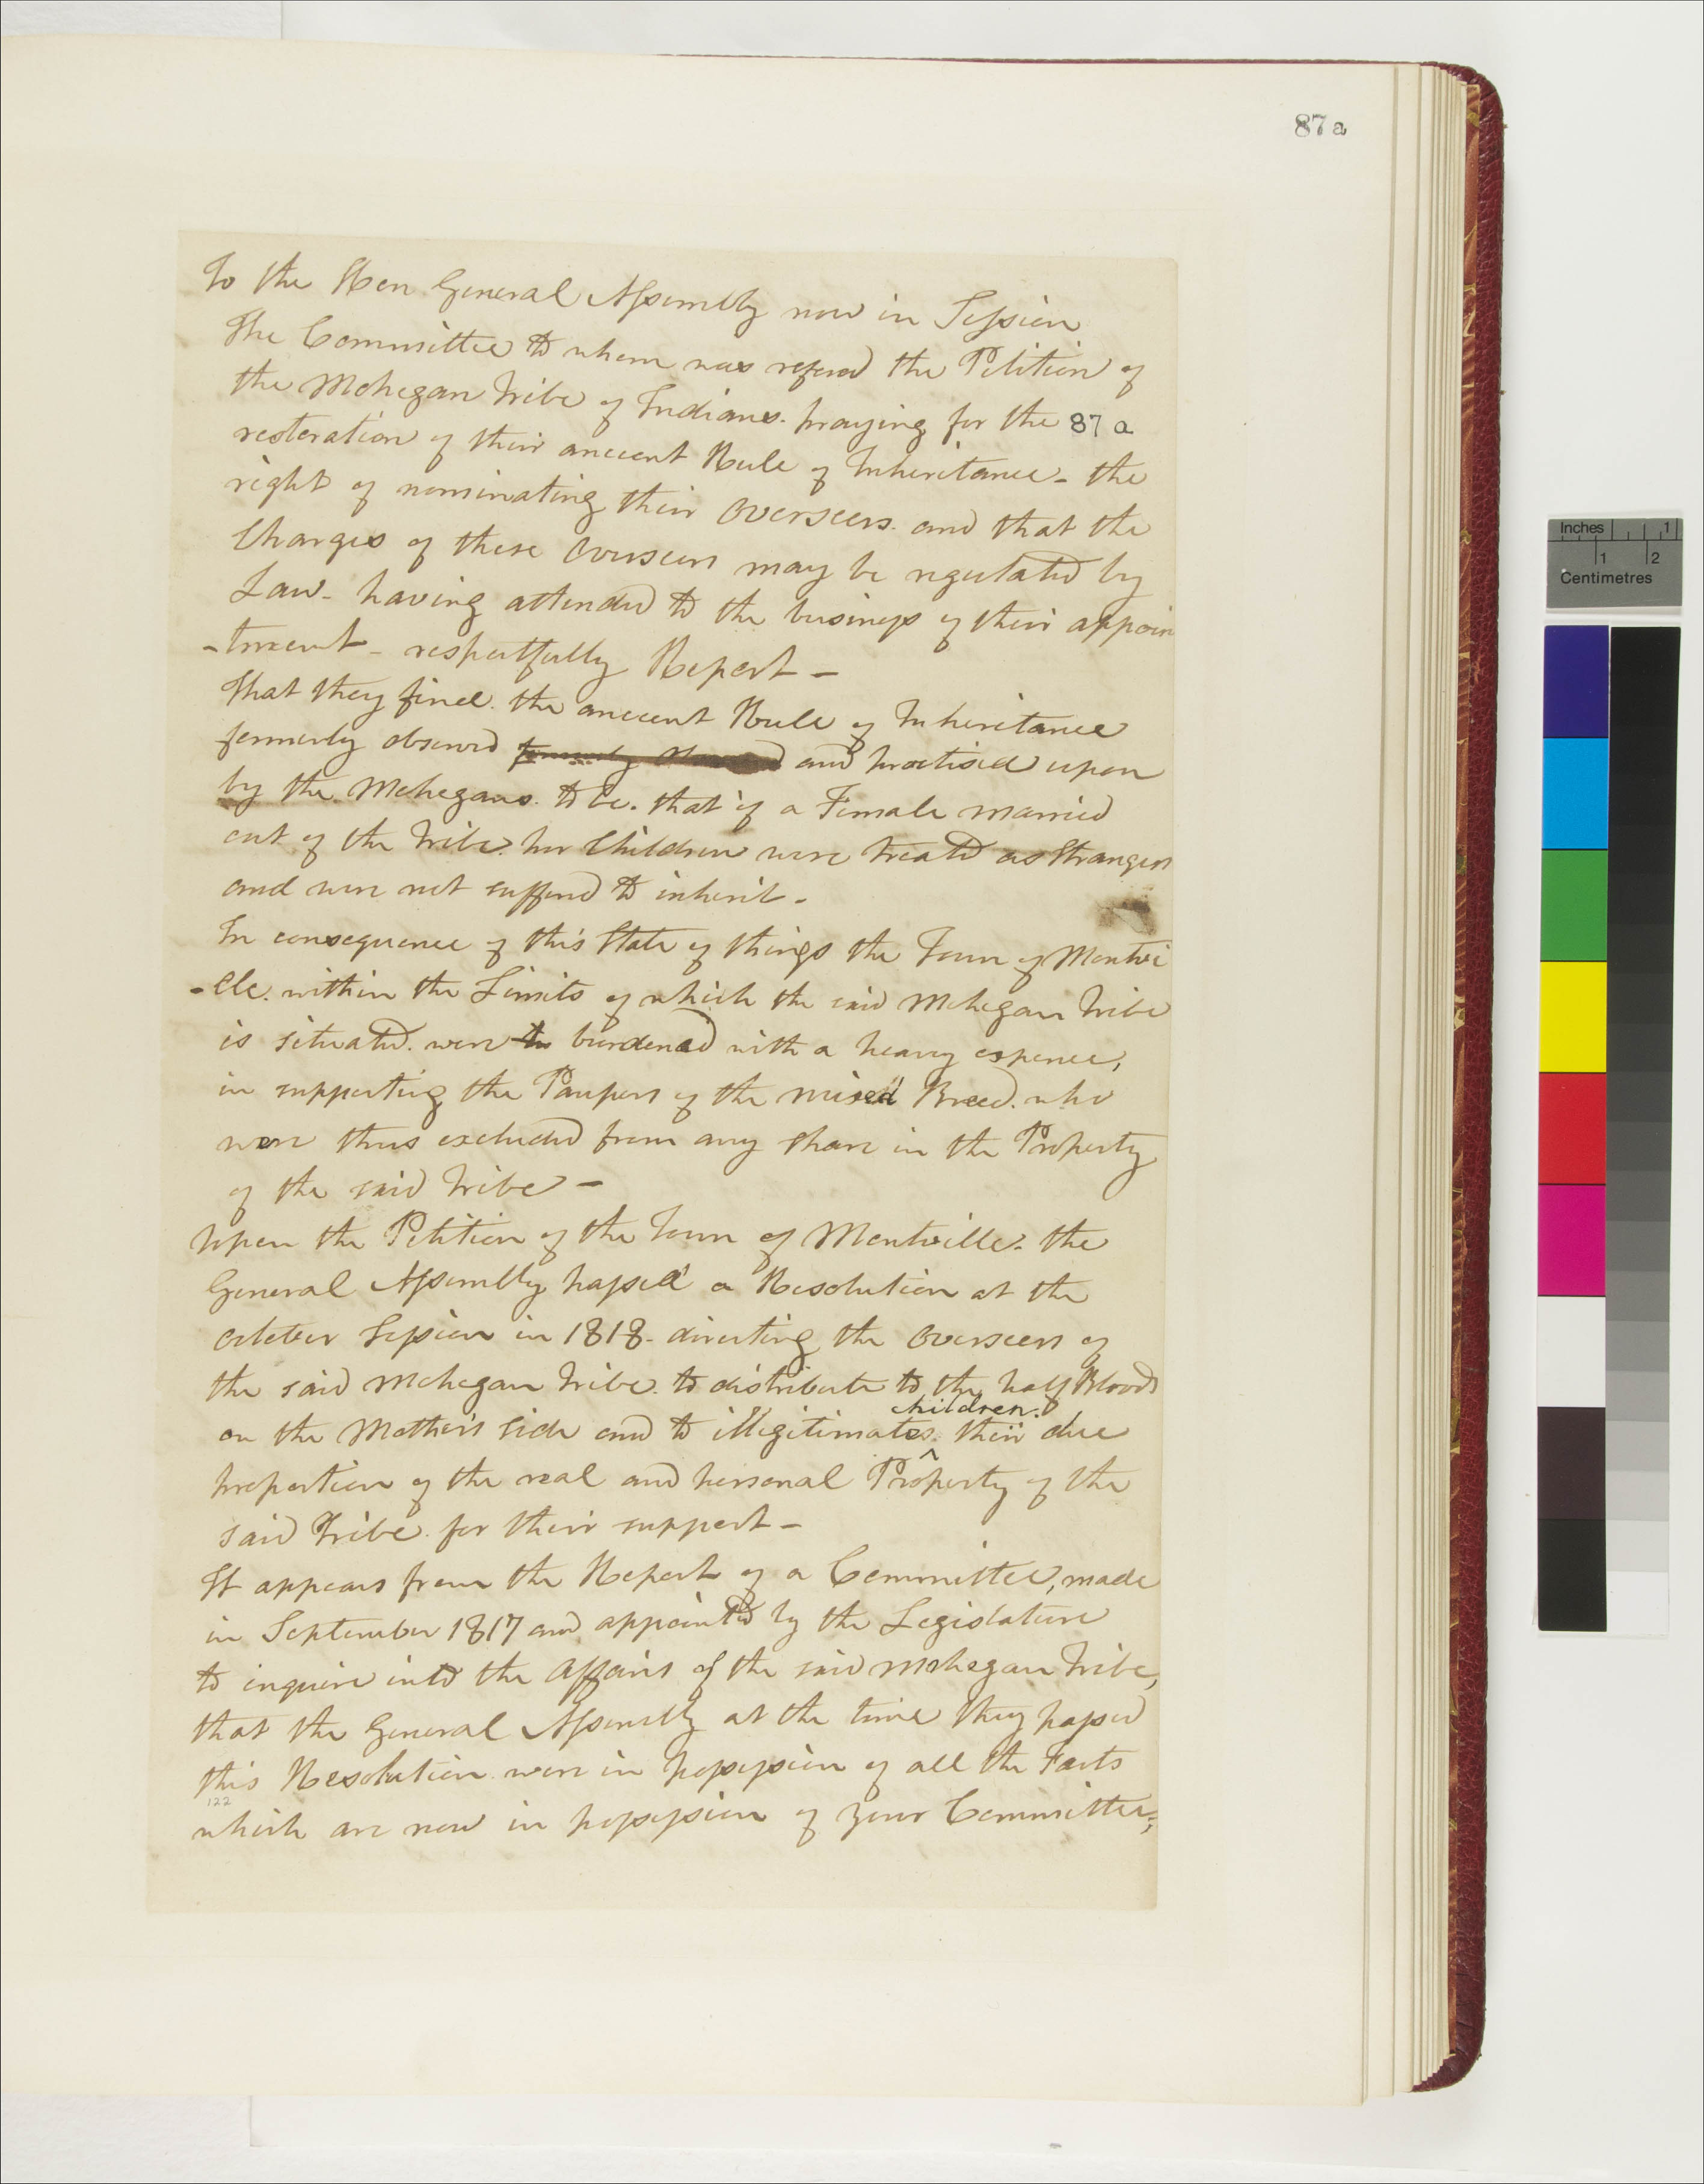 87 a
To the Hon General Assembly now in Session
The Committee to whom was refered the Petition of
the Mohegan Tribe of Indians. praying for the 87 a
restoration of their ancient Rule of Inheritance - the
right of nominating their Overseers. and that the
Charges of these Overseers may be regulated by
Law - having attended to the business of their appoin
-tment - respectfully Report -
That they find. the ancient Rule of Inheritance
formerly observed formerly observed and practised upon
by the Mohegans. to be. that if a Female married
out of the Tribe. her Children were treated as Strangers
and were not suffered to inherit -
In consequence of this State of things the Town of Montvi
-lle. within the Limits of which the said Mohegan Tribe
is situated. were to burdened with a heavy expence,
in supporting the Paupers of the mixed Breed. who
were thus excluded from any share in the Property
of the said Tribe -
Upon the Petition of the Town of Montville - the
General Assembly passed a Resolution at the
October Session in 1818 - directing the Overseers of
the said Mohegan Tribe. to distribute to the half Bloods
children.
on the Mother's side and to illegitimates. ^ their due
proportion of the real and personal Property of the
said Tribe. for their support -
It appears from the Report of a Committee, made
in September 1817 and appointed by the Legislature
to inquire into the Affairs of the said Mohegan Tribe,
that the General Assembly at the time they passed
this Resolution were in possession of all the Facts
122
which are now in possession of your Committee;
Inches 1
1 2
Centimetres